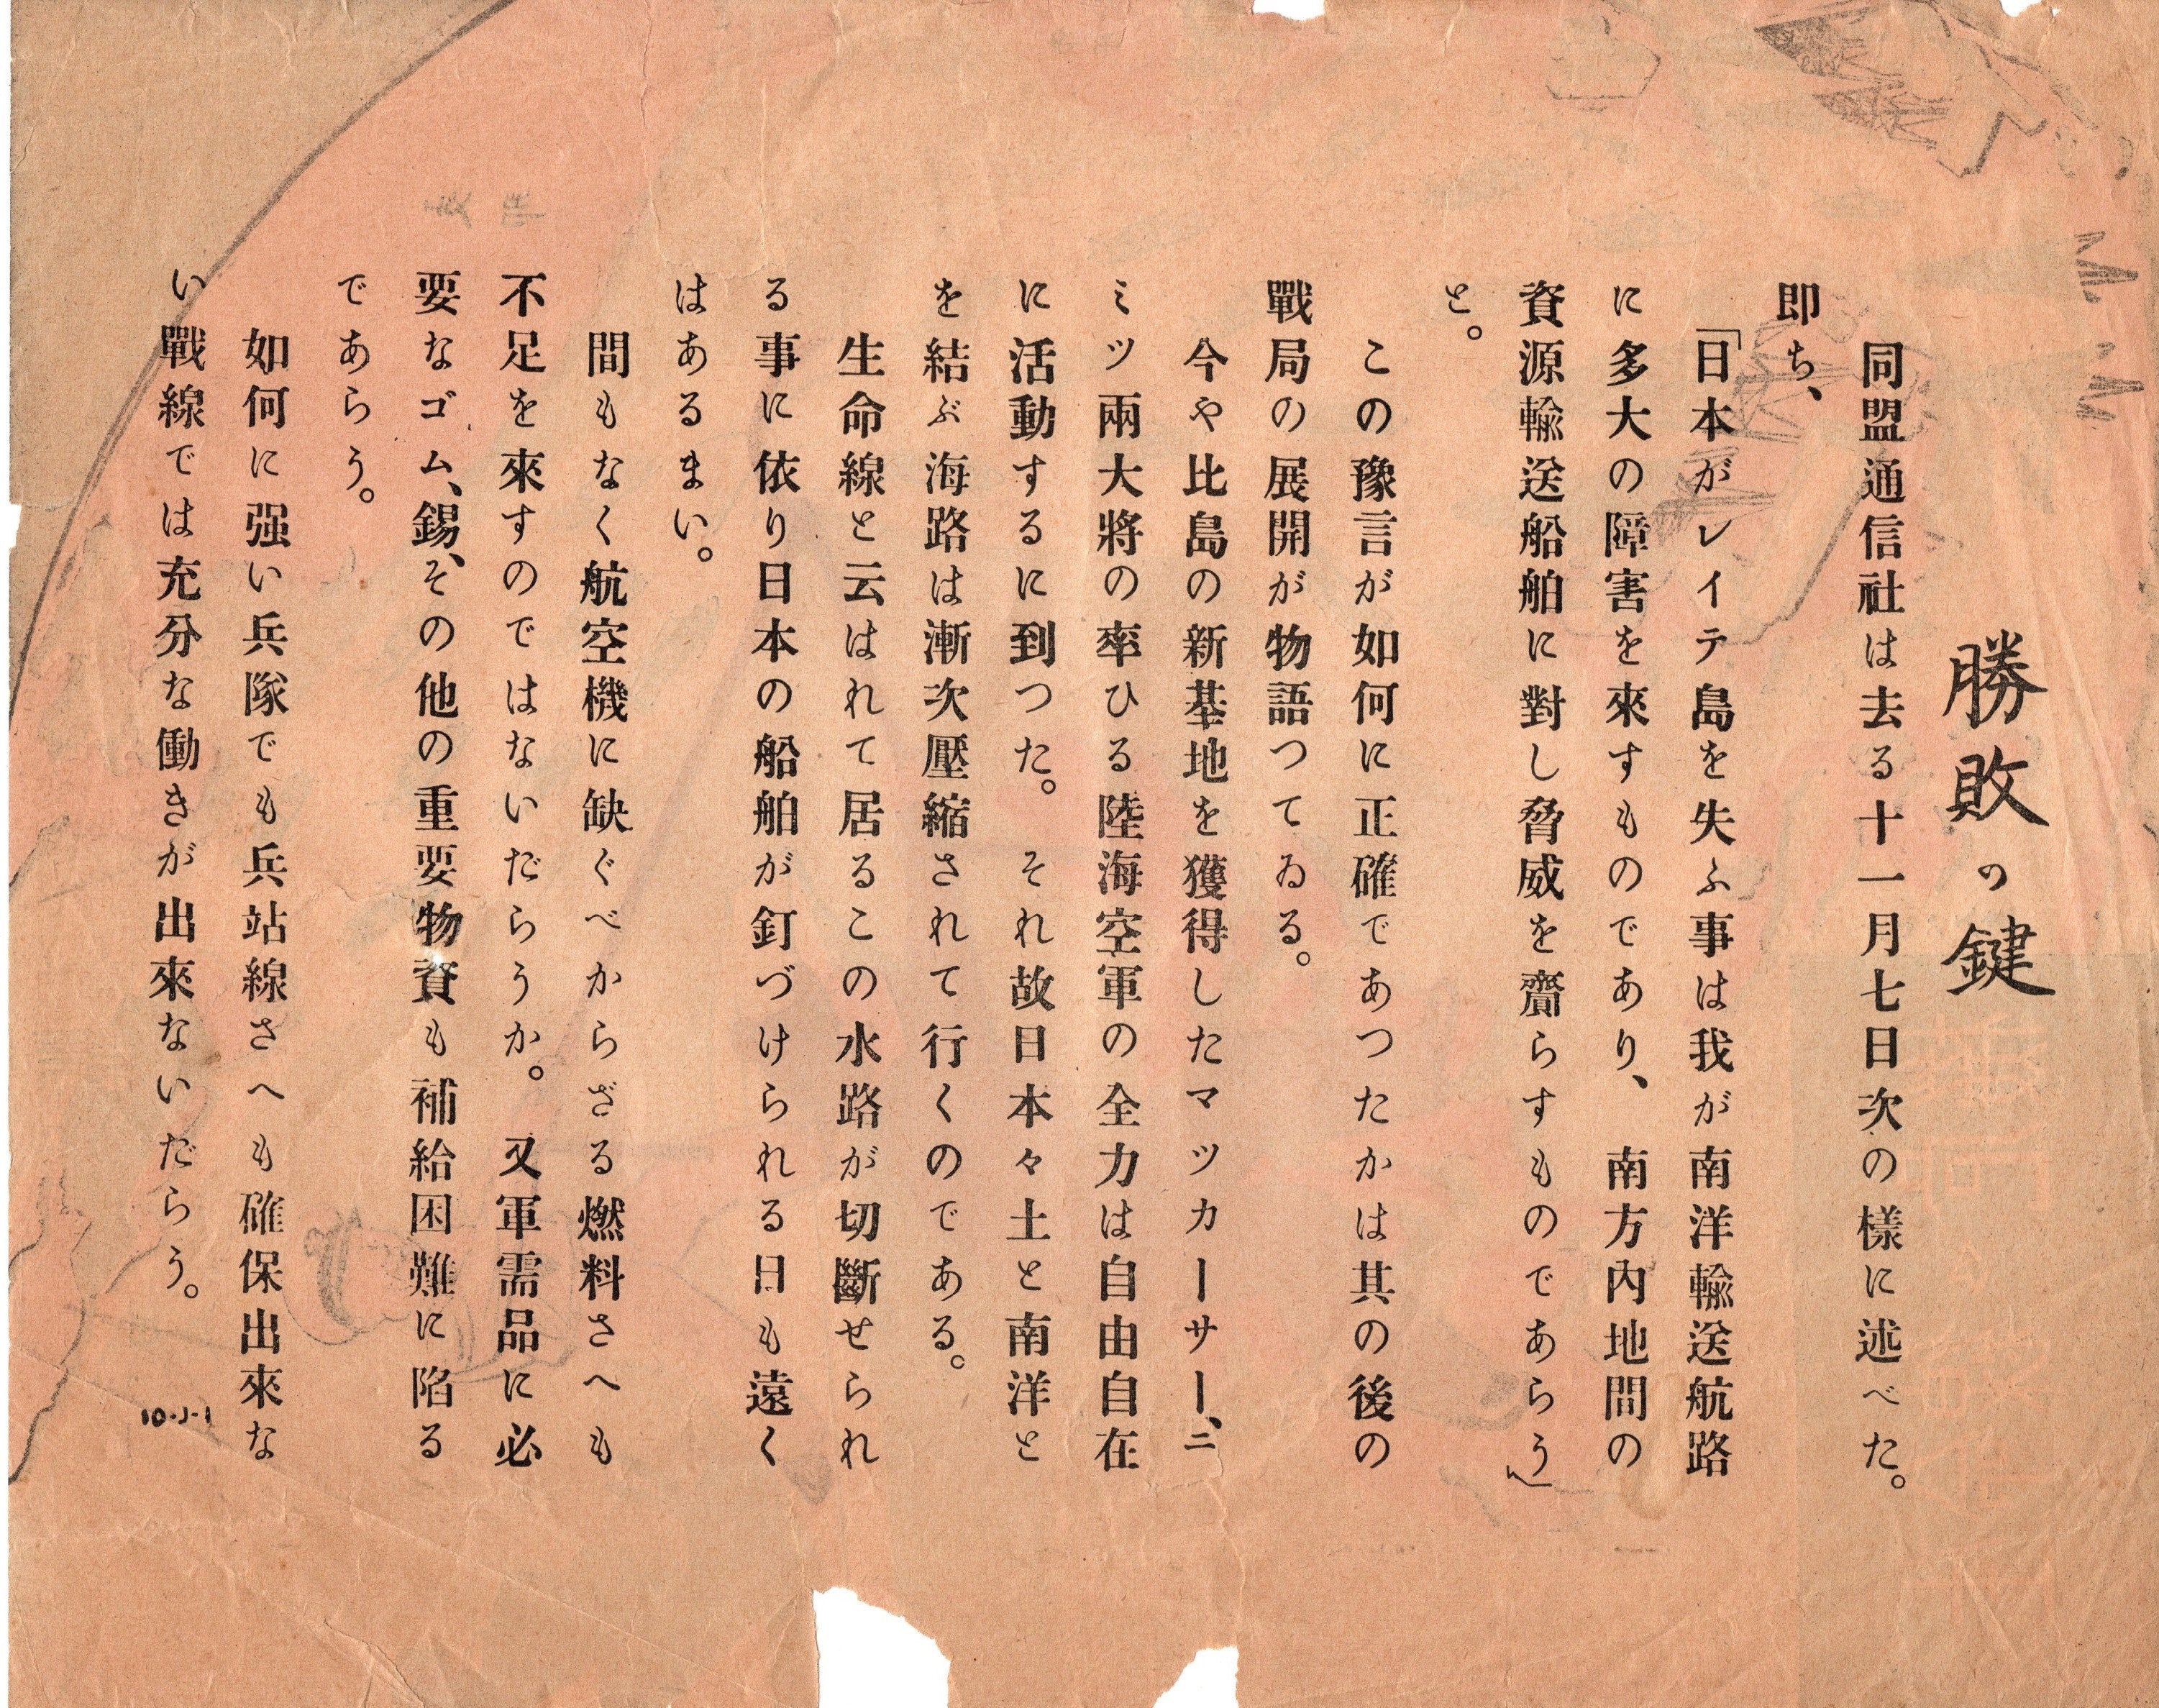 勝敗の鍵
同盟通信社は去る十一月七日次の樣に述べた。
即ち、
「日本がレイテ島を失ふ事は我が南洋輸送航路
に多大の障害を來すものであり、南方內地間の
資源輸送船舶に對し脅威を齎らすものであらう」
と。
この豫言が如何に正確であつたかは其の後の
戰局の展開が物語つてゐる。
今や比島の新基地を獲得したマツカーサー、ニ
ミツ兩大將の率ひる陸海空軍の全力は自由自在
に活動するに到つた。それ故日本々土と南洋と
を結ぶ海路は漸次壓縮されて行くのである。
生命線と云はれて居るこの水路が切斷せられ
る事に依り日本の船舶が釘づけられる日も遠く
はあるまい。
間もなく航空機に缺ぐべからざる燃料さへも
不足を來すのではないだらうか。又軍需品に必
要なゴム、錫、その他の重要物資も補給困難に陷る
であらう。
如何に强い兵隊でも兵站線さへも確保出來な
い戰線では充分な働きが出來ないだらう。
10-J-1